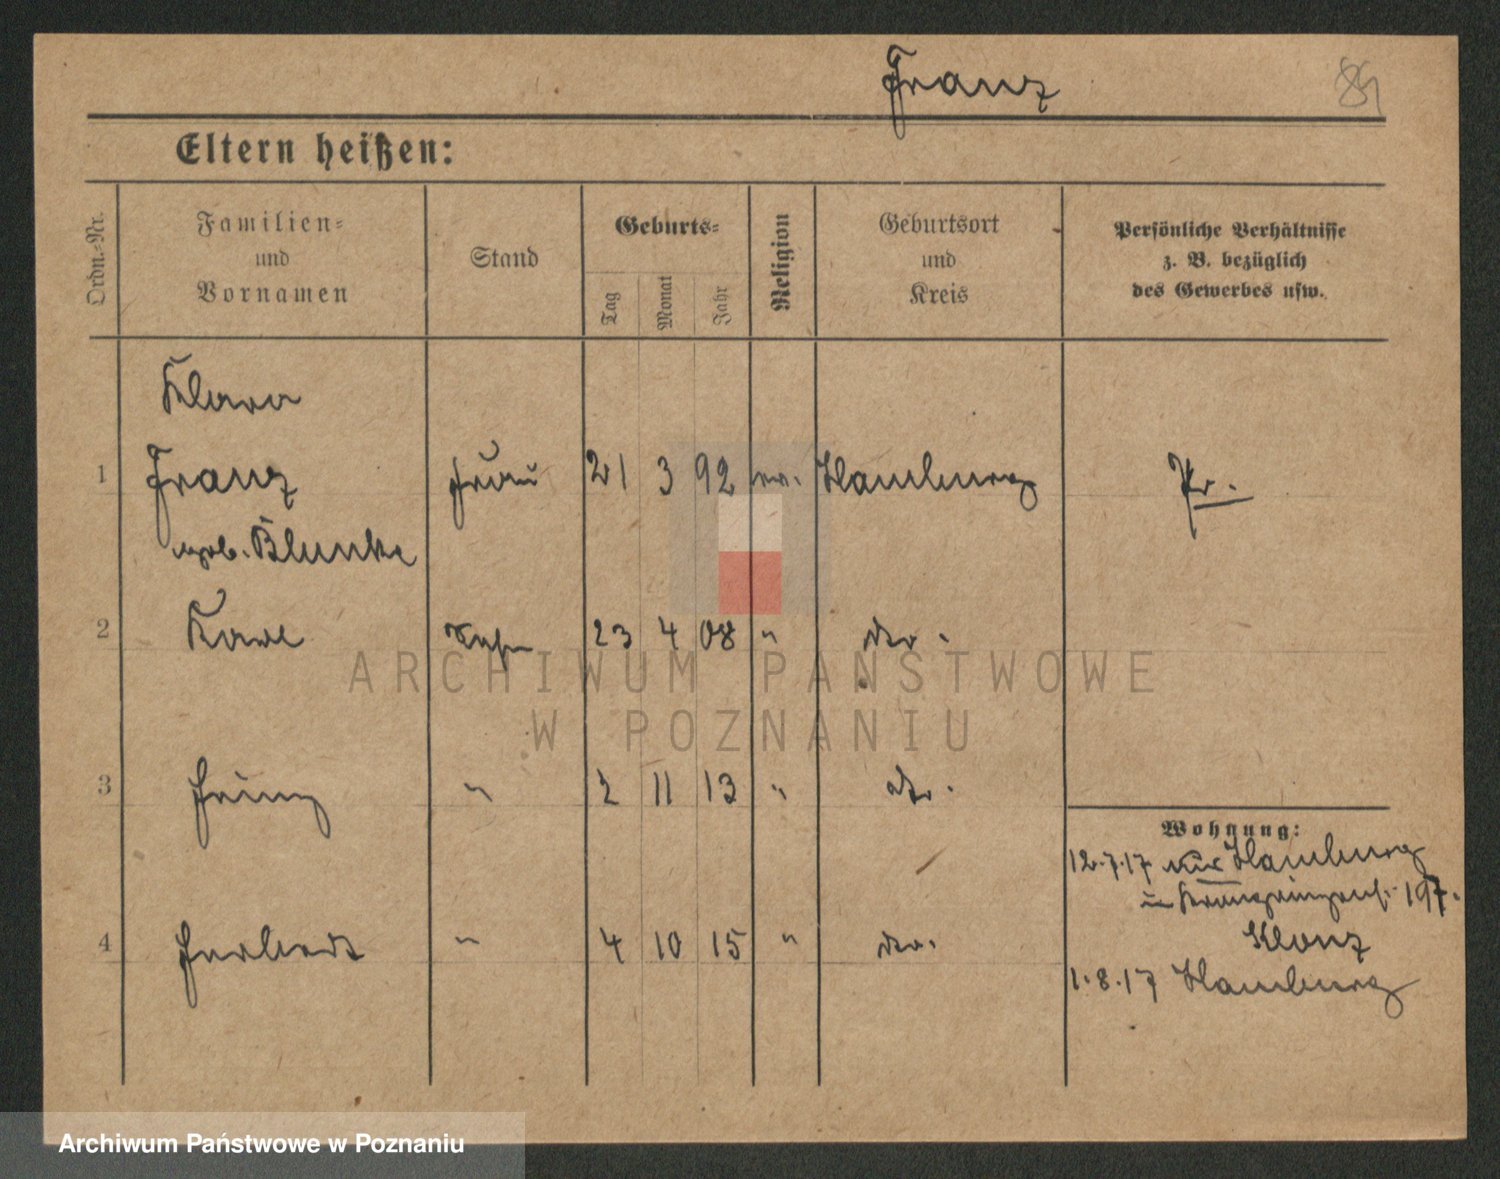 Franz
84
Eltern heißen:
Ordn.-Nr.
Familien- und Vornamen
Stand
Geburts-
Tag
Monat
Jahr
Religion
Geburtsort und Kreis
Persönliche Verhältnisse
z. B. bezüglich
des Gewerbes usw.
Klara
1 Franz Frau 21 3 92 ev. Hamburg Pr.
geb. Blunke
2 Karl Sohn 23 4 08 " dto.
ARCHIWUM PAŃSTWOWE
W POZNANIU
3 Heinz " 2 11 13 " dto.
Wohnung:
12.7.17 aus Hamburg
197.
4 Herbert " 4 10 15 " dto.
Klonz
1.8.17 Hamburg
Archiwum Państwowe w Poznaniu